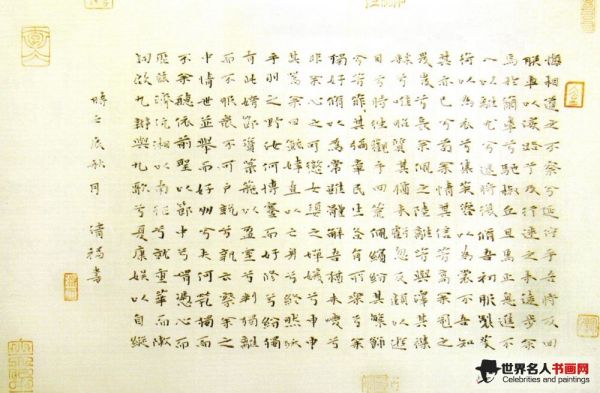 悔相道之不察兮延佇乎吾將反回
朕車以復路兮及行迷之未遠步余
馬於蘭皋兮馳椒丘且焉止息進不
入以離尤兮退將復脩吾初服製芰
荷以為衣兮集芙蓉以為裳不吾知
其亦已兮苟余情其信芳高余冠之
岌岌兮長余佩之陸離芳與澤其雜
糅兮唯昭質其猶未虧忽反顧以遊
目兮將往觀乎四荒佩繽紛其繁飾
兮芳菲菲其彌章民生各有所樂兮余
獨好脩以為常雖體解吾猶未變兮
非余心之可懲女嬃之嬋媛兮申申
其詈予曰鯀婞直以亡身兮終然殀
乎羽之野汝何博謇而好脩兮紛獨
有此姱節薋菉葹以盈室兮判獨離
而不服衆不可戶說兮孰云察余之
中情世並舉而好朋兮夫何煢獨而
不余聽依前聖以節中兮喟憑心而
歷茲濟沅湘以南征兮就重華而敶
詞啟九辯與九歌兮夏康娛以自縱
時歲秋月 清書
世界名人书画网
Celebrities and paintings